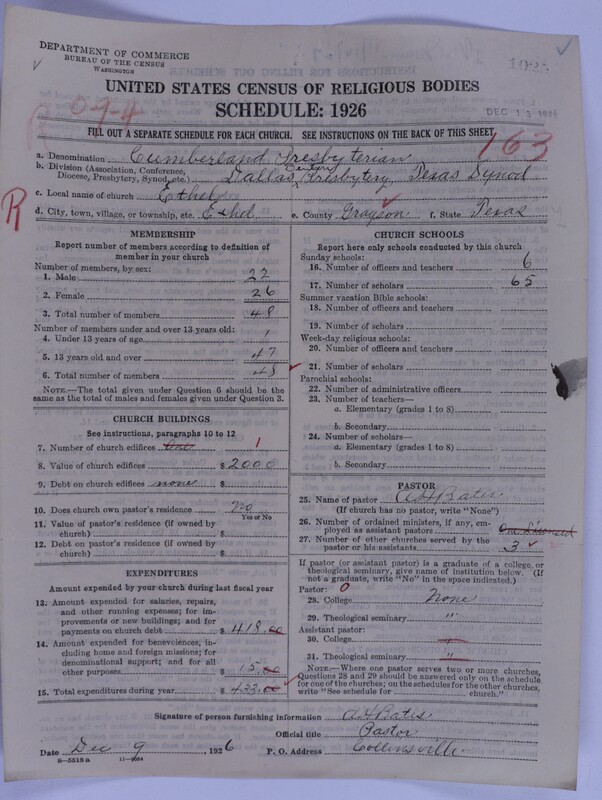 DEPARTMENT OF COMMERCE
BUREAU OF THE CENSUS
WASHINGTON
DEC 13 1926
UNITED STATES CENSUS OF RELIGIOUS BODIES
SCHEDULE: 1926
09-4
163
R
FILL OUT A SEPARATE SCHEDULE FOR EACH CHURCH. SEE INSTRUCTIONS ON THE BACK OF THIS SHEET
a. Denomination Cumberland Presbyterian
b. Division (Association, Conference, Diocese, Presbytery, Synod, etc.) Dallas Presbytery, Texas Synod
c. Local name of church Ethel
d. City, town, village, or township, etc. Ethel e. County Grayson f. State Texas
MEMBERSHIP
Report number of members according to definition of member in your church
Number of members, by sex:
1. Male 22
2. Female 26
3. Total number of members 48
Number of members under and over 13 years old:
4. Under 13 years of age 1
5. 13 years old and over 47
6. Total number of members 48
NOTE.—The total given under Question 6 should be the same as the total of males and females given under Question 3.
CHURCH BUILDINGS
See instructions, paragraphs 10 to 12
7. Number of church edifices One 1
8. Value of church edifices $ 2000
9. Debt on church edifices none $
10. Does church own pastor's residence? no
Yes or No
11. Value of pastor's residence (if owned by church) $
12. Debt on pastor's residence (if owned by church) $
EXPENDITURES
Amount expended by your church during last fiscal year
13. Amount expended for salaries, repairs, and other running expenses; for improvements or new buildings; and for payments on church debt $ 418.00
14. Amount expended for benevolences, including home and foreign missions; for denominational support; and for all other purposes $ 15.00
15. Total expenditures during year $ 433.00
CHURCH SCHOOLS
Report here only schools conducted by this church
Sunday schools:
16. Number of officers and teachers 6
17. Number of scholars 65
Summer vacation Bible schools:
18. Number of officers and teachers
19. Number of scholars
Week-day religious schools:
20. Number of officers and teachers
21. Number of scholars
Parochial schools:
22. Number of administrative officers
23. Number of teachers—
a. Elementary (grades 1 to 8)
b. Secondary
24. Number of scholars—
a. Elementary (grades 1 to 8)
b. Secondary
PASTOR
25. Name of pastor A H Bates
(If church has no pastor, write "None")
26. Number of ordained ministers, if any, employed as assistant pastors
27. Number of other churches served by the pastor or his assistants 3
If pastor (or assistant pastor) is graduate of a college, or theological seminary, give name of institution below. (If not a graduate, write "No" in the space indicated.)
Pastor: 0
28. College None
29. Theological seminary "
Assistant pastor:
30. College "
31. Theological seminary "
NOTE.—Where one pastor serves two or more churches, Questions 28 and 29 should be answered only on the schedule for one of the churches; on the schedules for the other churches, write "See schedule for ........ church."
Signature of person furnishing information A H Bates
Official title Pastor
Date Dec 9, 1926 P. O. Address Collinsville
8—5518 a